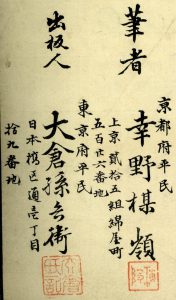 筆者
京都府平民
幸野楳嶺
上京貳拾五組錦屋町
五百廿六番地
出板人
東京府平民
大倉孫兵衛
日本橋区通壱丁目
拾九番地